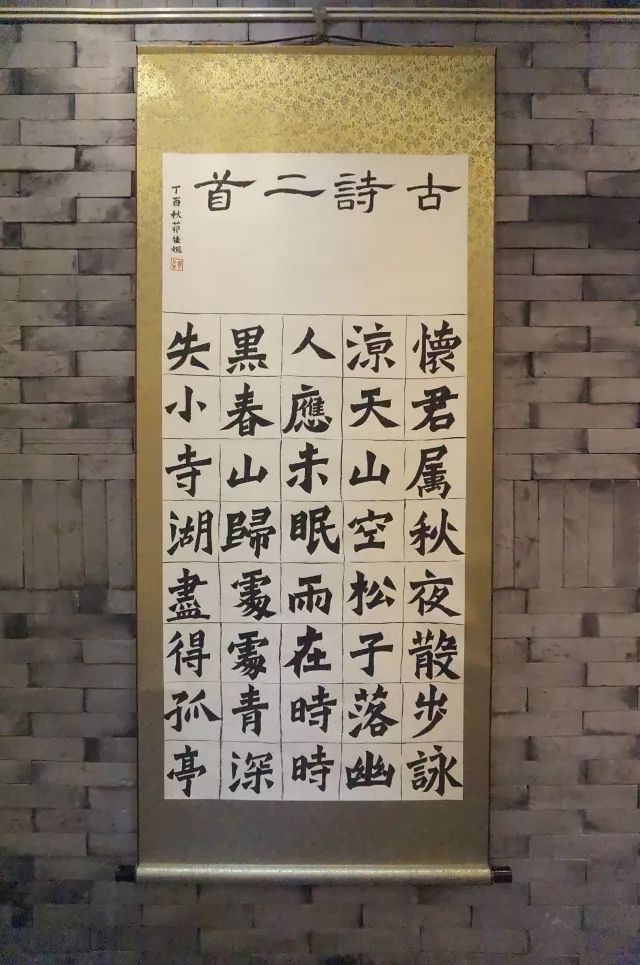 古詩二首
懷君属秋夜散步詠
涼天山空松子落幽
人應未眠雨在時時
黑春山歸處處青深
失小寺湖盡得孤亭
丁酉秋